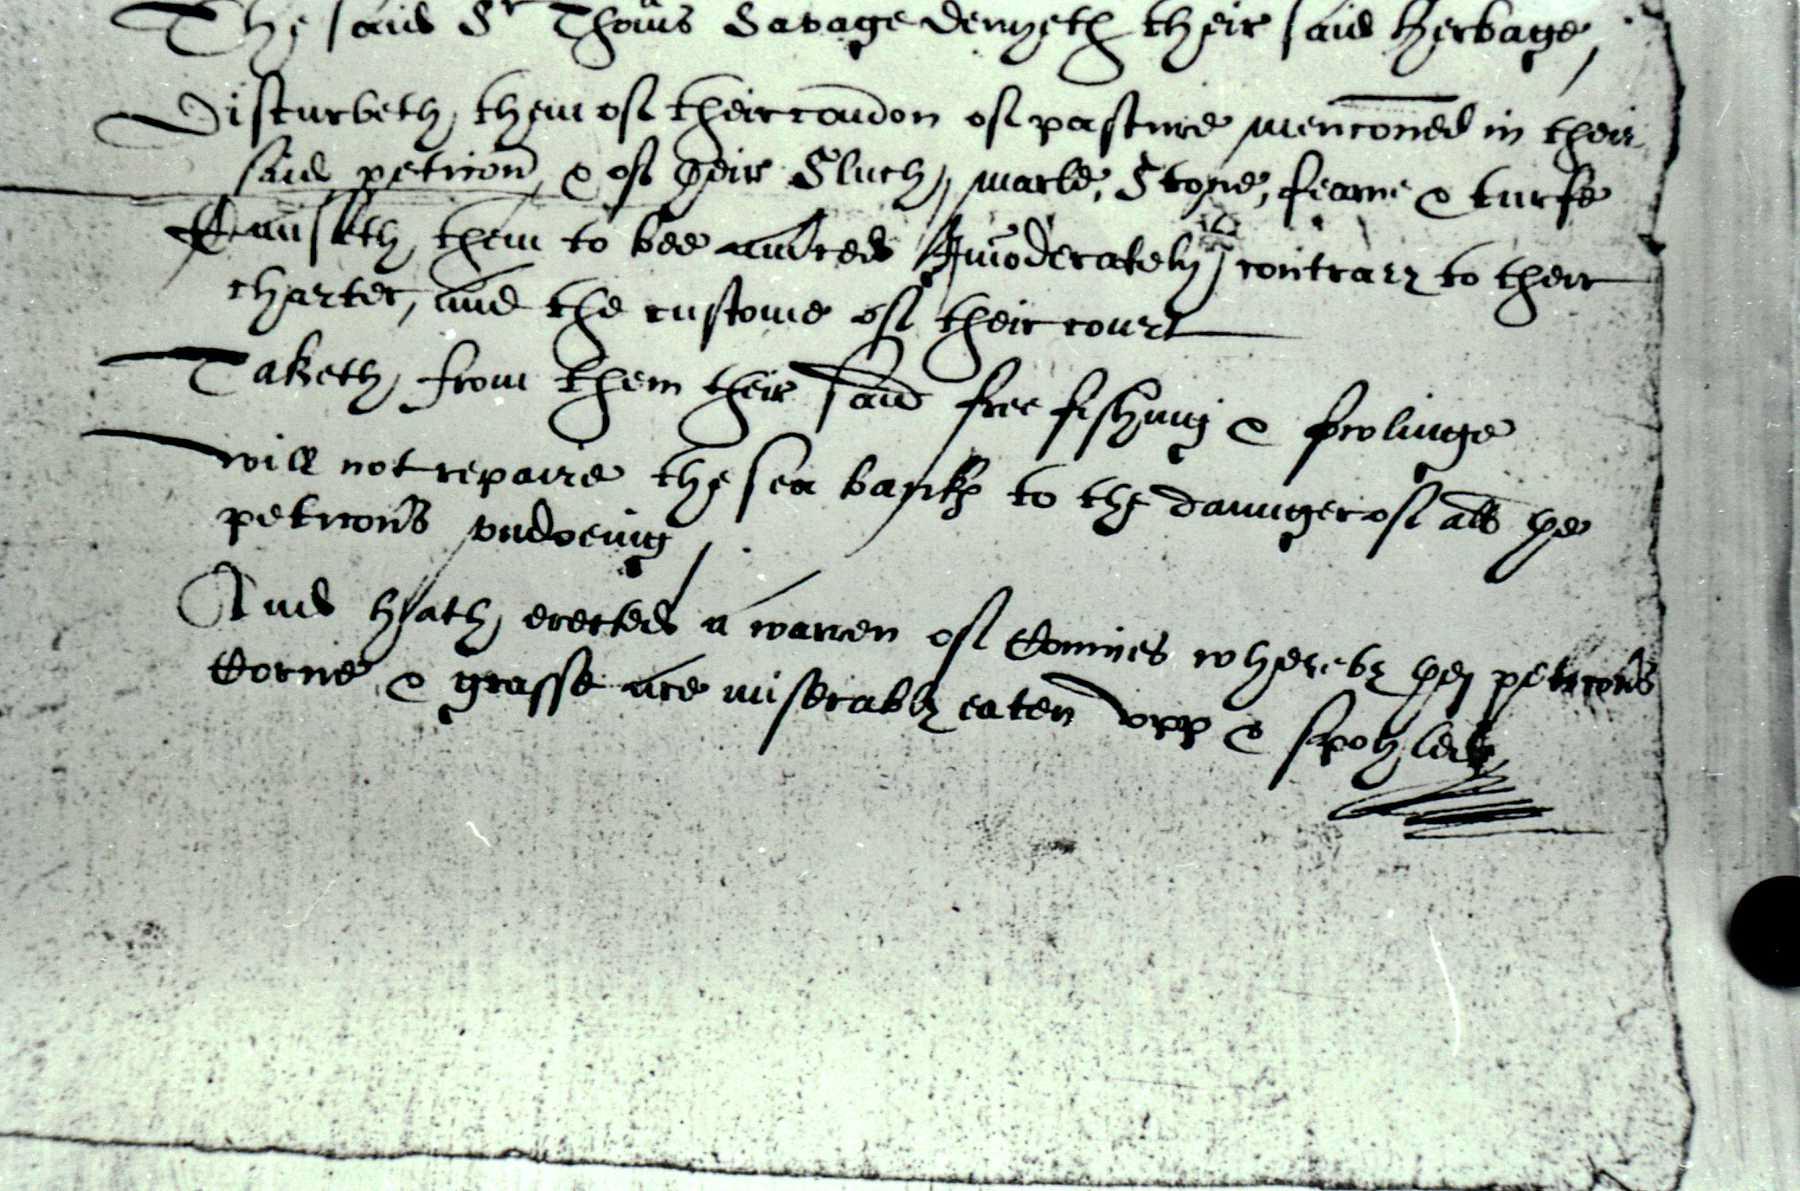 The said Sr Thoms Savage denyeth their said herbage,
Disturbeth them of their comon of pasture menconed in their
said peticon, & of their Sluch, marle, Stone, fearne & turfe
Causeth them to bee amerced Imoderately, contrary to their
charter, and the custome of their court
Taketh from them their said free fishing & fowlinge
will not repaire the sea banks to the daunger of all the
peticoners undoeing.
And hath erected a warren of Connies whereby the peticoners
Corne & grasse are miserably eaten upp & spoyled